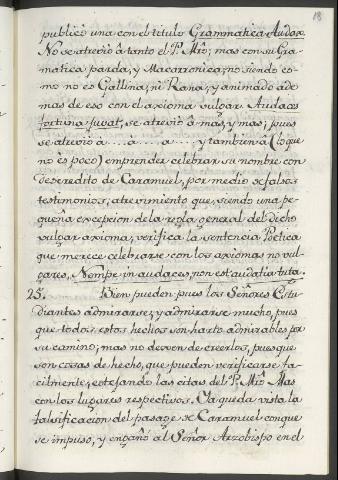 18
publicó una con el titulo Grammatica Audax.
No se atrevió á tanto el P. Mro; mas con su Gra-
matica parda, y Macarronica, no siendo co-
mo no es Gallina, ni Rana, y animado ade
mas de eso con el axioma vulgar Audaces
fortuna juvat, se atrevió á mas, y mas; pues
se atrevió á .... á .... á .... y tambien á (lo que
no es poco) emprender celebrar su nombre con
descredito de Caramuel, por medio de falsos
testimonios; atrevimiento que, siendo una pe-
queña excepcion de la regla general del dicho
vulgar axioma, verifica la sentencia Poetica
que merece celebrarse con los axiomas no vul-
gares, Nempe in audaces, non est audatia tuta.
25. Bien pueden pues los Señores Estu-
diantes admirarse, y admirarse mucho, pues
que todos estos hechos son harto admirables por
su camino; mas no dexen de creerlos, pues que
son cosas de hecho, que pueden verificarse fa-
cilmente, cotejando las citas del P. Mro Mas
con los lugares respectivos. Ya queda vista la
falsificacion del pasage de Caramuel con que
se impuso, y engañó al Señor Arzobispo en el